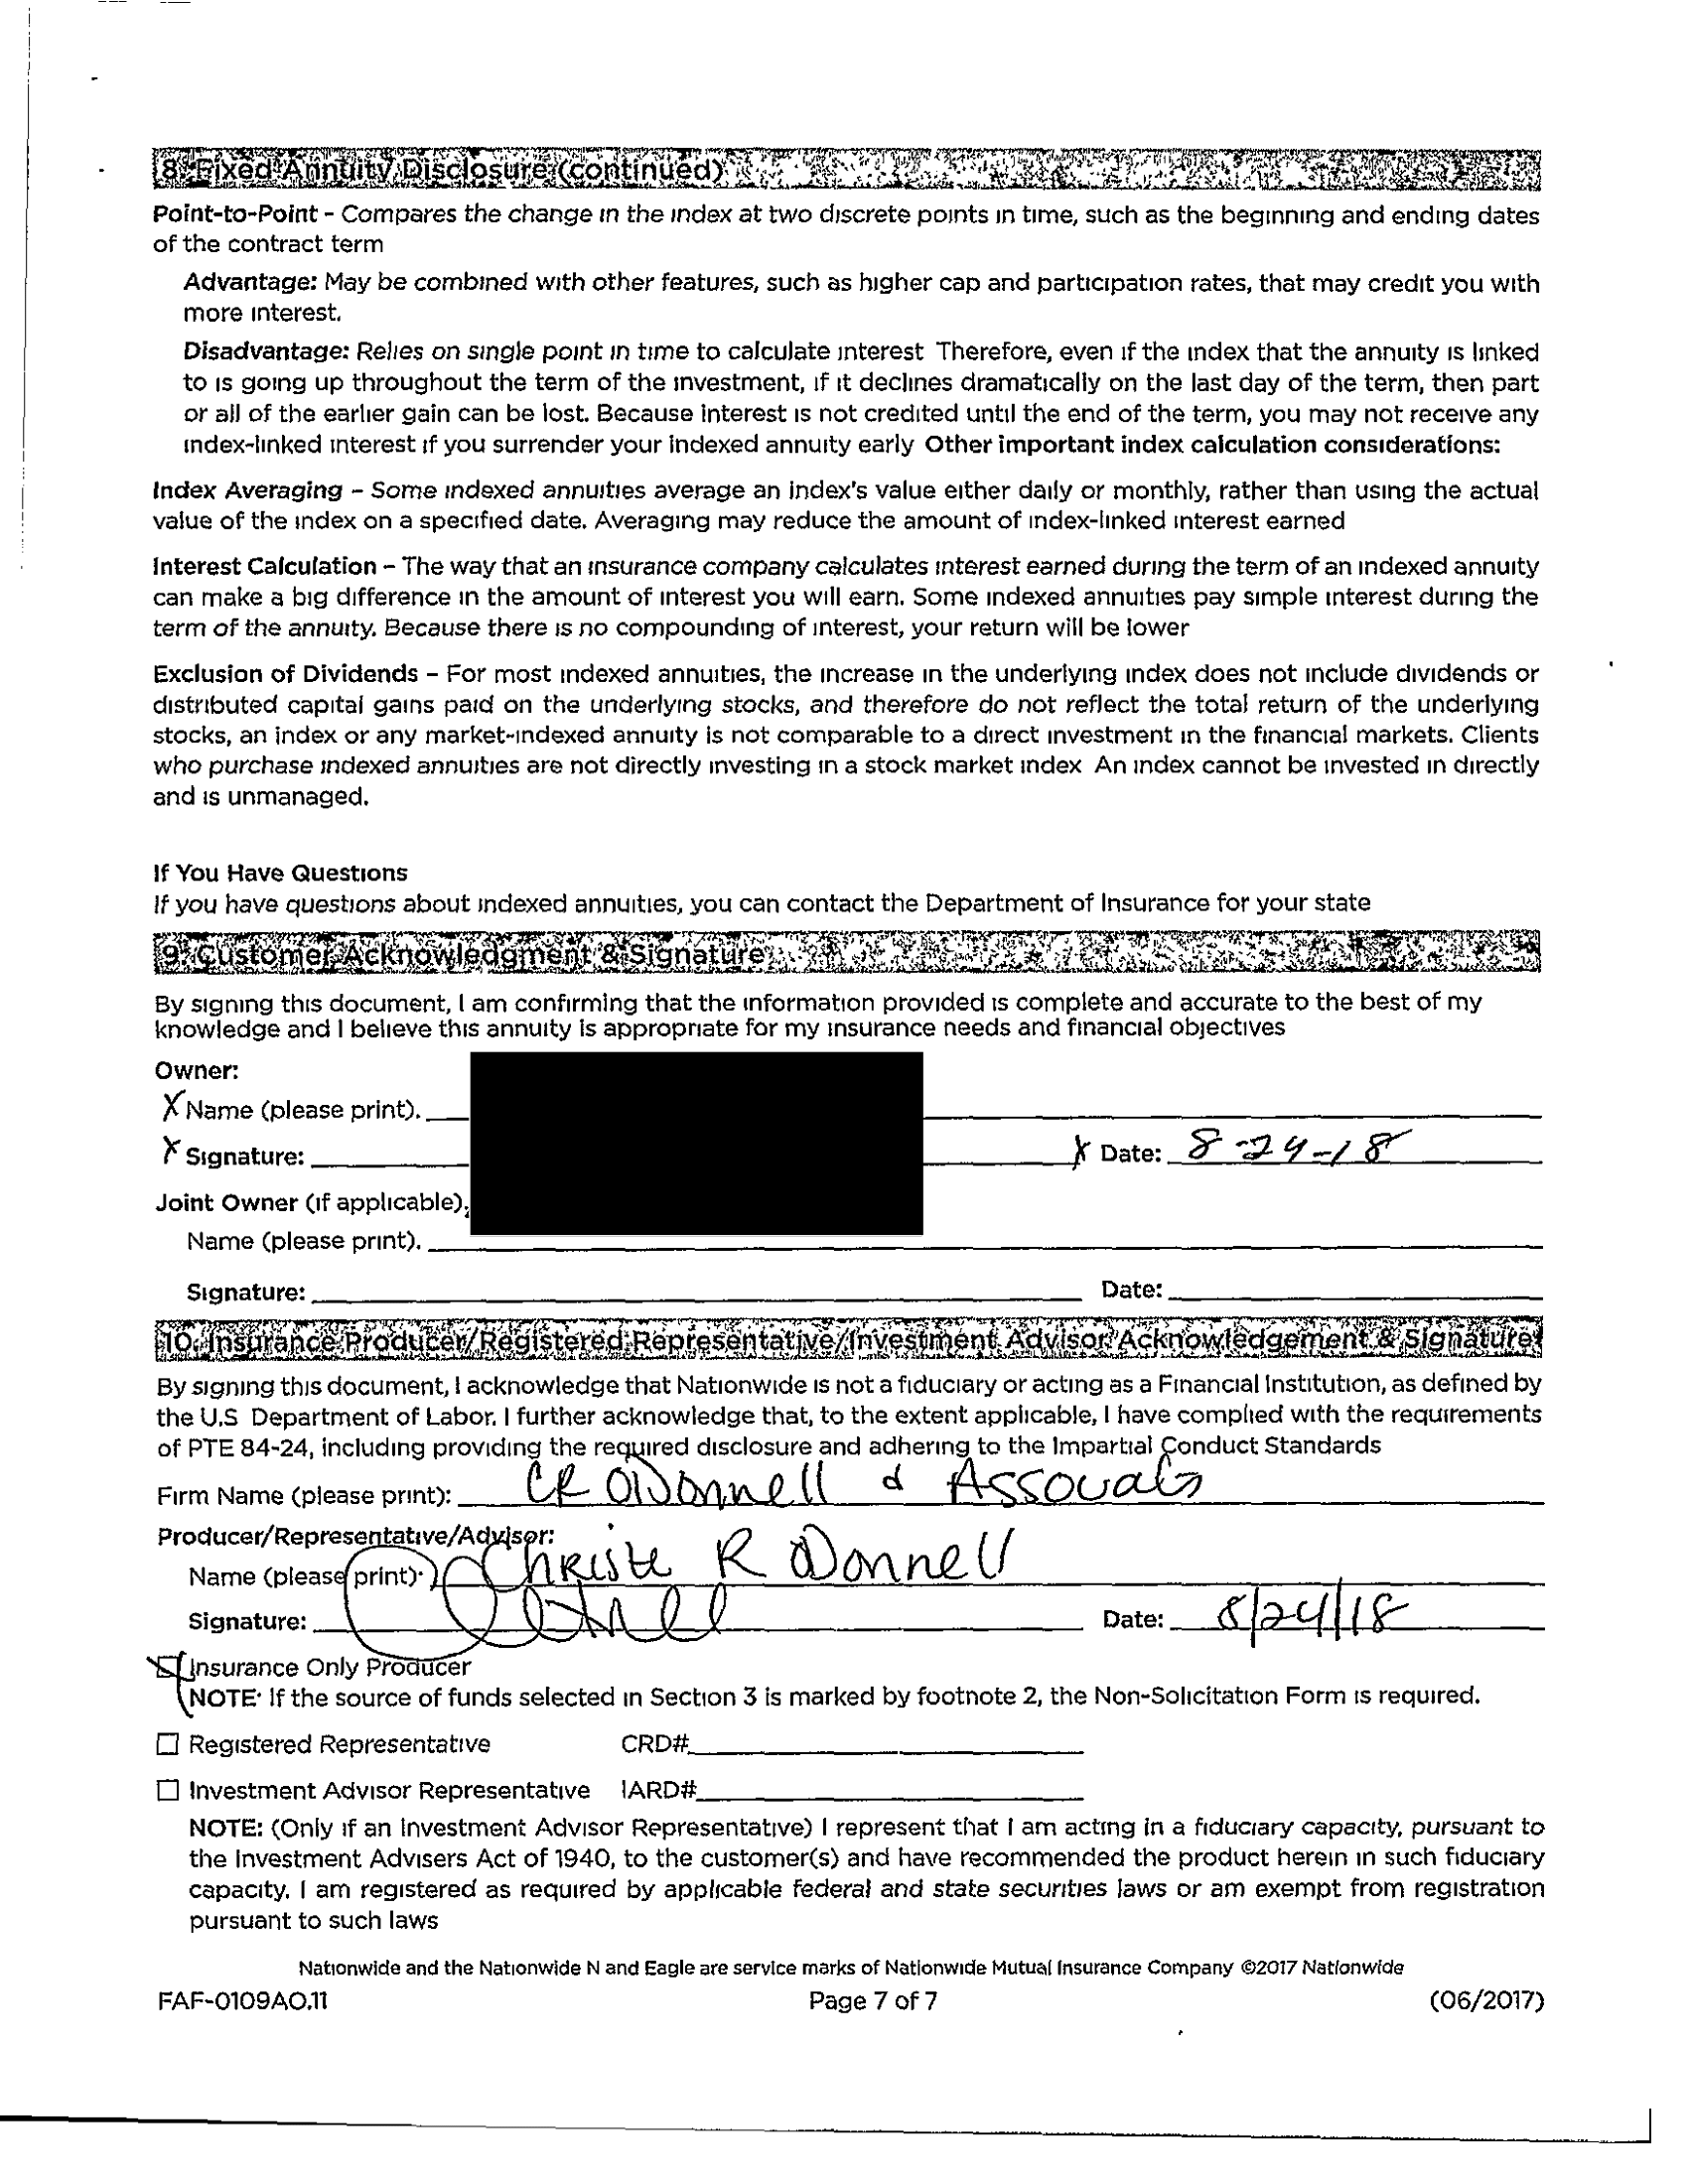 8. Fixed Annuity Disclosure (continued)
Point-to-Point - Compares the change in the index at two discrete points in time, such as the beginning and ending dates
of the contract term
Advantage: May be combined with other features, such as higher cap and participation rates, that may credit you with
more interest.
Disadvantage: Relies on single point in time to calculate interest Therefore, even if the index that the annuity is linked
to is going up throughout the term of the investment, if it declines dramatically on the last day of the term, then part
or all of the earlier gain can be lost. Because interest is not credited until the end of the term, you may not receive any
index-linked interest if you surrender your indexed annuity early Other important index calculation considerations:
Index Averaging – Some indexed annuities average an index's value either daily or monthly, rather than using the actual
value of the index on a specified date. Averaging may reduce the amount of index-linked interest earned
Interest Calculation – The way that an insurance company calculates interest earned during the term of an indexed annuity
can make a big difference in the amount of interest you will earn. Some indexed annuities pay simple interest during the
term of the annuity. Because there is no compounding of interest, your return will be lower
Exclusion of Dividends – For most indexed annuities, the increase in the underlying index does not include dividends or
distributed capital gains paid on the underlying stocks, and therefore do not reflect the total return of the underlying
stocks, an index or any market-indexed annuity is not comparable to a direct investment in the financial markets. Clients
who purchase indexed annuities are not directly investing in a stock market index An index cannot be invested in directly
and is unmanaged.
If You Have Questions
If you have questions about indexed annuities, you can contact the Department of Insurance for your state
9. Customer Acknowledgment & Signature
By signing this document, I am confirming that the information provided is complete and accurate to the best of my
knowledge and I believe this annuity is appropriate for my insurance needs and financial objectives
Owner:
X Name (please print).
X Signature: X Date: 8-24-18
Joint Owner (if applicable).
Name (please print).
Signature: Date:
10. Insurance Producer/Registered Representative/Investment Advisor Acknowledgement & Signature
By signing this document, I acknowledge that Nationwide is not a fiduciary or acting as a Financial Institution, as defined by
the U.S Department of Labor. I further acknowledge that, to the extent applicable, I have complied with the requirements
of PTE 84-24, including providing the required disclosure and adhering to the Impartial Conduct Standards
Firm Name (please print): CR ODonnell &
Producer/Representative/Advisor:
Name (please print): R ODonnell
Signature: Date: 8/24/18
Insurance Only Producer
NOTE: If the source of funds selected in Section 3 is marked by footnote 2, the Non-Solicitation Form is required.
Registered Representative CRD#
Investment Advisor Representative IARD#
NOTE: (Only if an Investment Advisor Representative) I represent that I am acting in a fiduciary capacity, pursuant to
the Investment Advisers Act of 1940, to the customer(s) and have recommended the product herein in such fiduciary
capacity. I am registered as required by applicable federal and state securities laws or am exempt from registration
pursuant to such laws
Nationwide and the Nationwide N and Eagle are service marks of Nationwide Mutual Insurance Company ©2017 Nationwide
FAF-0109AO.11 Page 7 of 7 (06/2017)